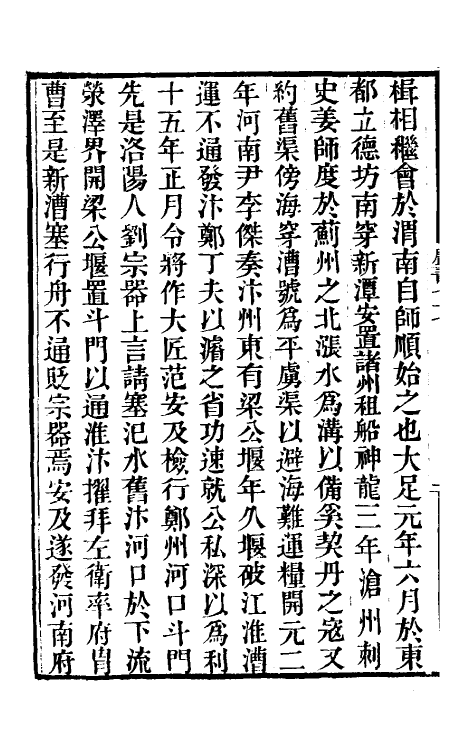 楫相繼會於渭南自師順始之也大足元年六月於東
都立德坊南穿新潭安置諸州租船神龍三年滄州刺
史姜師度於薊州之北漲水爲溝以備奚契丹之寇又
約舊渠傍海穿漕號爲平虜渠以避海難運糧開元二
年河南尹李傑奏汴州東有梁公堰年久堰破江淮漕
運不通發汴鄭丁夫以濬之省功速就公私深以爲利
十五年正月令將作大匠范安及檢行鄭州河口斗門
先是洛陽人劉宗器上言請塞汜水舊汴河口於下流
滎澤界開梁公堰置斗門以通淮汴擢拜左衛率府胄
曹至是新漕塞行舟不通貶宗器焉安及遂發河南府